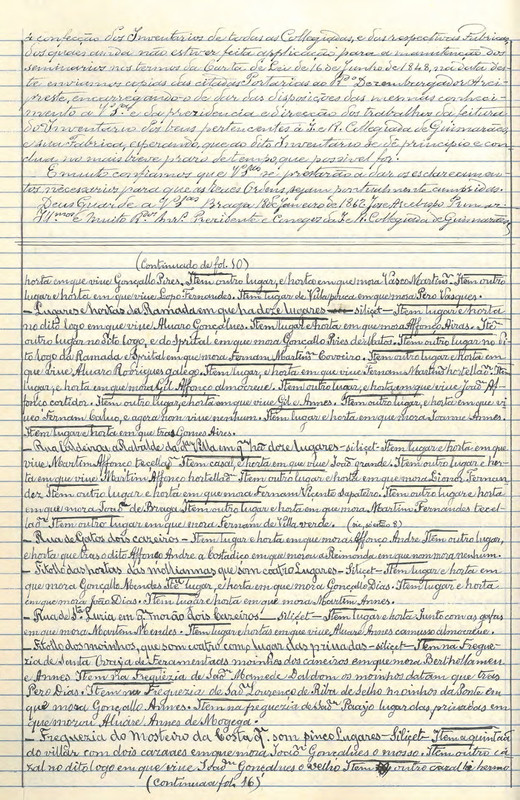 e confecção dos Inventarios de todas as Collegiadas, e das respectivas Fabricas,
dos quaes ainda não estiver feita applicação para a manutenção dos
seminarios nos termos da Carta de Lei de 16 de Junho de 1848, na data des-
te enviamos copias das citadas Portarias ao R.mo Dezembargador Arci-
preste, encarregando-o de dar das disposições das mesmas conheci-
mento a V.S.as e da presidencia e direcção dos trabalhos da feitura
do Inventario dos bens pertencentes á I. e R. Collegiada de Guimarães,
e sua Fabrica, esperando que ao dito Inventario se dê principio e con-
clua, no mais breve prazo de tempo, que possivel for.
E muito confiamos que V.S.as se prestarão a dar os esclarecimen-
tos necessarios para que as suas Ordens sejam pontualmente cumpridas.
Deus Guarde a V.S.as Braga 18 de Janeiro de 1862 José Arcebispo Primaz.
Ill.mos e Muito R.dos Snrs. Presidente e Conegos da I. e R. Collegiada de Guimarães
(Continuado de fol. 10)
horta em que vive Gonçallo Pires. Item outro lugar, e horta em que mora Vasco Martins. Item outro
lugar e horta em que vive Lopo Fernandes. Item lugar de Villa pouca em que mora Pero Vasques.
– Lugares e hortas da Ramada em que ha doze lugares – siliçet – Item lugar e horta
no dito logo em que vive Alvaro Gonçalves. Item lugar e horta em que mora Affonço Airas. Ite
outro lugar no dito logo, e do Sprital em que mora Gonçallo Pires de Matos. Item outro lugar no di-
to logo da Ramada e Spital em que mora Fernam Martins Corveiro. Item outro lugar e horta em
que vive Alvaro Rodrigues galego. Item lugar, e horta em que vive Fernam Martins hortellão. Item
lugar, e horta em que mora Gil Affonço almocreve. Item outro lugar, e horta em que vive João Af
fonço cortidor. Item outro lugar, e horta em que vive Gil e Annes. Item outro lugar, e horta em que vi
veo Fernam Calvo, e agora non vive nenhum. Item lugar e horta em que mora Joanne Annes.
Item lugar e horta em que tras Gomes Aires.
– Rua Caldeiroa a Rabalde da d.ta Villa em q. ha doze lugares – siliçet – Item lugar e horta em que
vive Martim Affonço tecellam. Item casal, e horta em que vive João grande. Item outro lugar e hor-
ta em que vive Martim Affonço hortellão. Item outro lugar e horta em que mora Lionor Fernan
dez Item outro lugar e horta em que mora Fernam Vicente Sapateiro. Item outro lugar e horta
em que mora João de Braga. Item outro lugar e horta em que mora Martim Fernandes tecel-
lão. Item outro lugar em que mora Fernam de Villa verde. (sic, só estão 8)
– Rua de Gatos dois cazeiros – Item lugar e horta em que mora Affonço Andre. Item outro lugar,
e horta que tras o dito Affonço Andre a Costadiço em que morava Reimonda em que nom mora nenhum.
– Titolo das portas das molliannas que som coatro Lugares – Siliçet – Item lugar e horta em
que mora Gonçallo Mendes. Item lugar, e horta em que mora Gonçallo Dias. Item lugar e horta
em que mora João Dias. Item lugar e horta em que mora Martim Annes.
– Rua de S.ta Luzia em q. morão dois Cazeiros – Siliçet – Item lugar e horta Junto com as gafas
em que mora Martim Mendes. Item lugar e hortas em que vive Alvare Annes camiuso almocreve.
– Titollo dos moinhos, que som contro com o lugar das privadas – siliçet – Item na Fregue-
zia de Santa Ovaja de Feramentados moinhos dos caneiros em que mora Bertholameu
e Annes Item na Freguezia de São Mamede Daldom os moinhos datam que tras
Pero Dias. Item na Freguezia de São Lourenço de Riba de Selho moinhos da Ponte em
que mora Gonçallo Annes. Item na freguezia de São Paajo lugar das privadas em
que morou Aluarel Annes de Mogega.
– Freguezia do Mosteiro da Costa q. som sinco Lugares – Siliçet – Item a quintãa
do villar com dois cazaes em que mora João Gonçalves o mosso. Item outro ca-
zal no dito logo em que vive João Gonçalves o velho Item outro cazal he hermo
(continua a fol. 16)